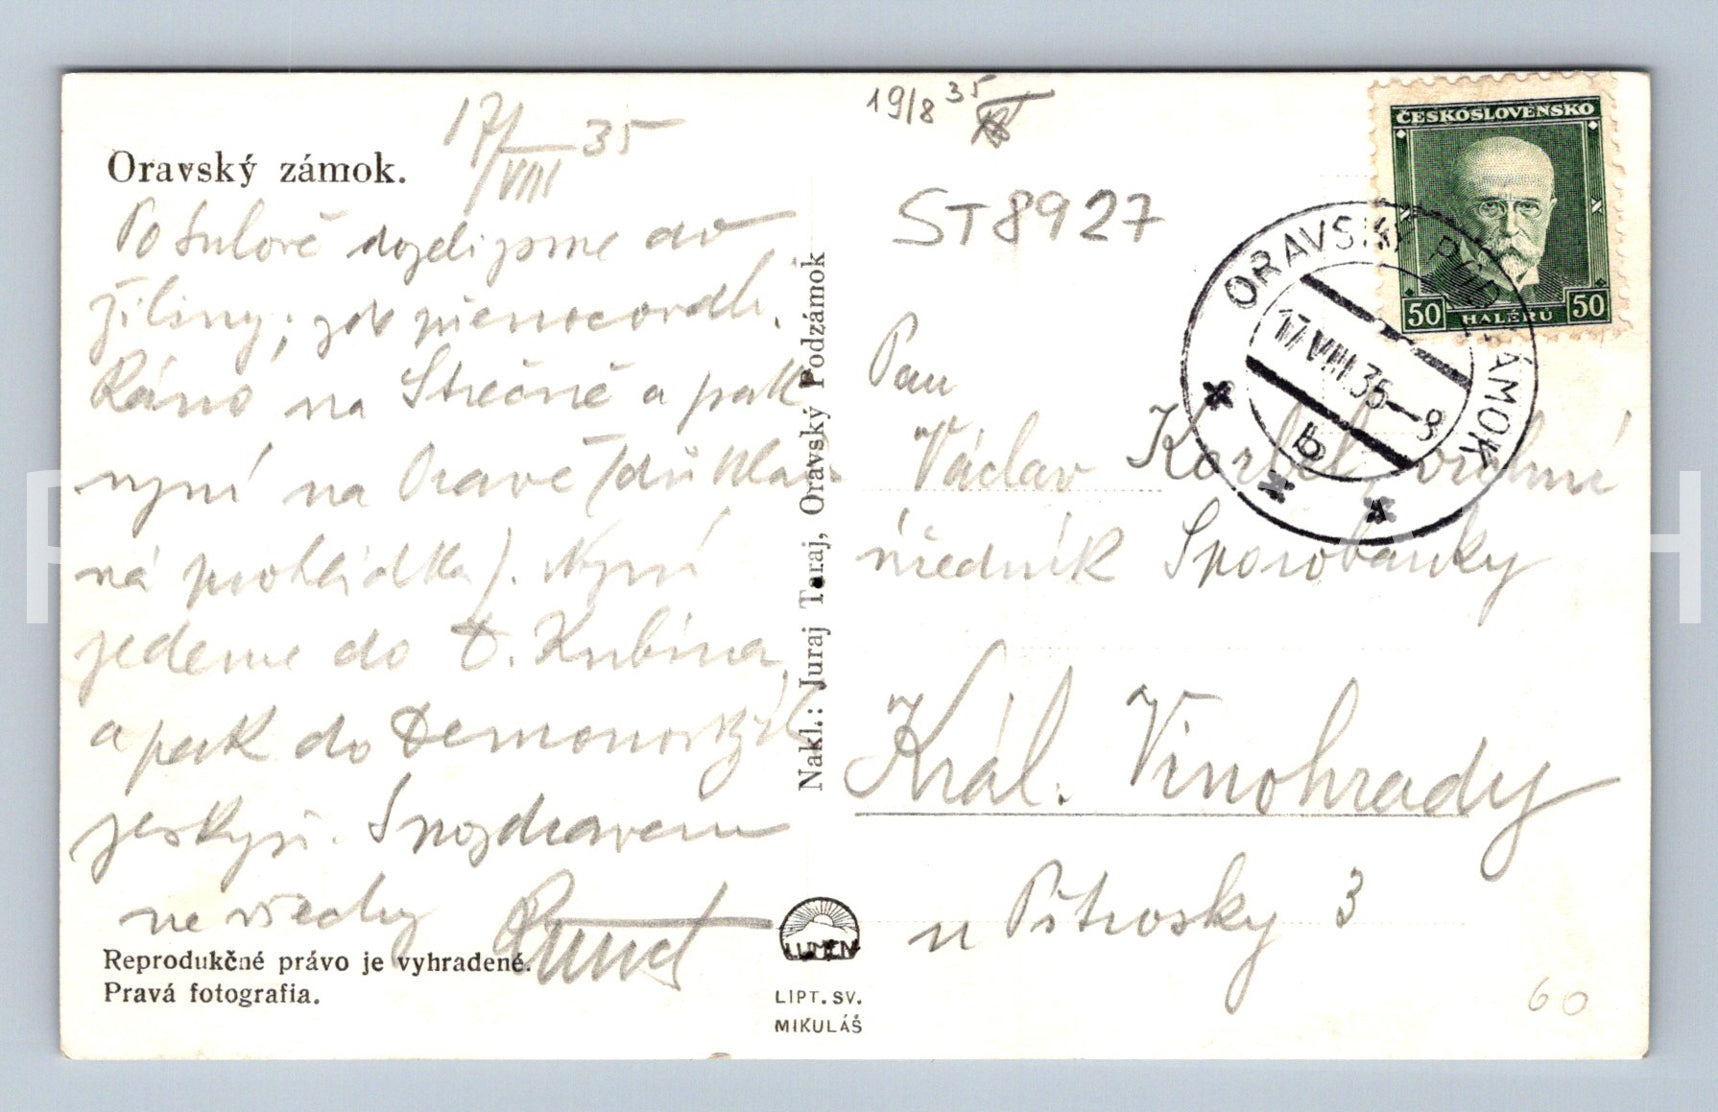 Oravský zámok.
17/VIII 35
Po Sulově dojeli jsme do
Žiliny, kde přenocovali.
Ráno na Strečně a pak
nyní na Oravě (důklad-
ná prohlídka). Nyní
jedeme do D. Kubína,
a pak do Demänovských
jeskyní. Srdečně zdravím
na všechny
Reprodukčné právo je vyhradené.
Pravá fotografia.
Nakl.: Juraj Taraj, Oravský Podzámok
LUMEN
LIPT. SV.
MIKULÁŠ
19/8 35
ST8927
ČESKOSLOVENSKO
50 HALÉRŮ 50
ORAVSKÝ PODZÁMOK
17.VIII.35-8
b
Pan
Václav Korbel
úředník Sporobanky
Král. Vinohrady
u Pštrosky 3
60